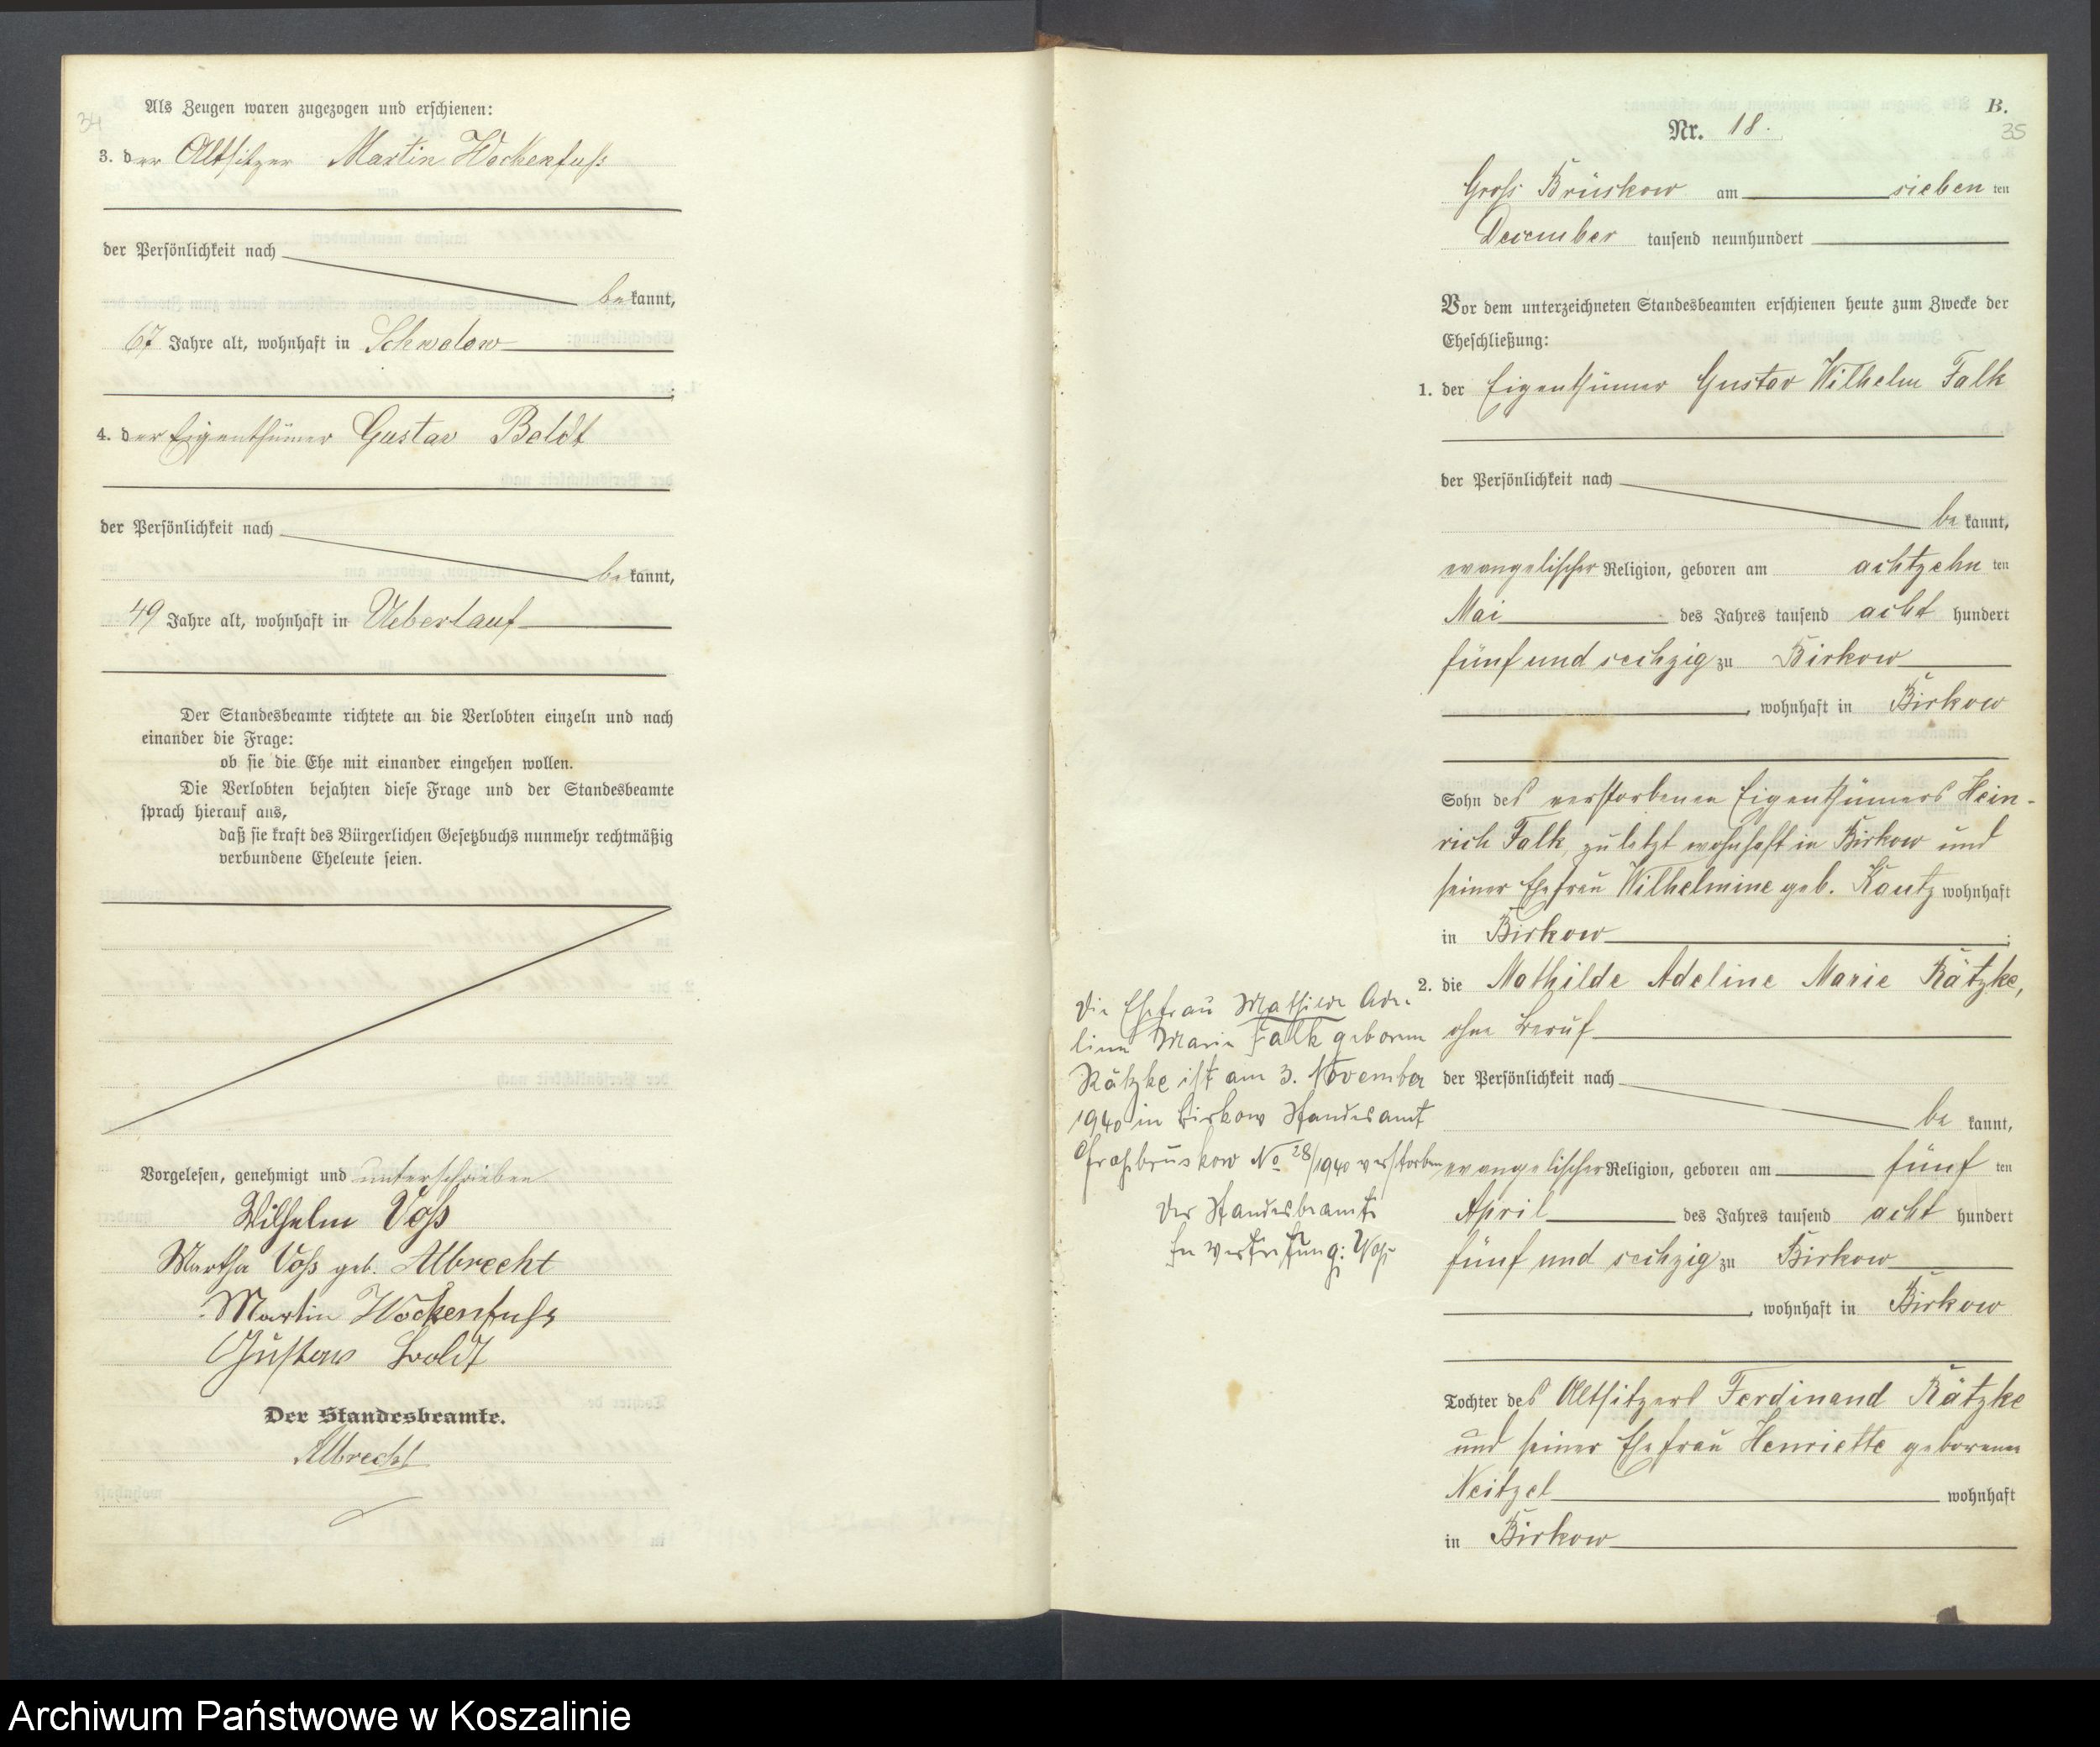 34
Als Zeugen waren zugezogen und erschienen:
3. der Altsitzer Martin Wockenfuß
der Persönlichkeit nach
bekannt,
67 Jahre alt, wohnhaft in Schwolow
;
4. der Eigenthümer Gustav Boldt
der Persönlichkeit nach
bekannt,
49 Jahre alt, wohnhaft in Ueberlauf
Der Standesbeamte richtete an die Verlobten einzeln und nach
einander die Frage:
ob sie die Ehe mit einander eingehen wollen.
Die Verlobten bejahten diese Frage und der Standesbeamte
sprach hierauf aus,
daß sie kraft des Bürgerlichen Gesetzbuchs nunmehr rechtmäßig
verbundene Eheleute seien.
Vorgelesen, genehmigt und unterschrieben
Wilhelm Voß
Martha Voß geb. Albrecht
Martin Wockenfuß
Gustav Boldt
Der Standesbeamte.
Albrecht
B.
35
Nr. 18.
Groß Brüskow am sieben ten
December tausend neunhundert
Vor dem unterzeichneten Standesbeamten erschienen heute zum Zwecke der
Eheschließung:
1. der Eigenthümer Gustav Wilhelm Falk
der Persönlichkeit nach
be kannt,
evangelischer Religion, geboren am achtzehn ten
Mai des Jahres tausend acht hundert
fünf und sechzig zu Birkow
, wohnhaft in Birkow
Sohn des verstorbenen Eigenthümers Hein-
rich Falk, zuletzt wohnhaft in Birkow und
seiner Ehefrau Wilhelmine geb. Kautz wohnhaft
in Birkow ;
2. die Mathilde Adeline Marie Rätzke,
ohne Beruf
der Persönlichkeit nach
be kannt,
evangelischer Religion, geboren am fünf ten
April des Jahres tausend acht hundert
fünf und sechzig zu Birkow
, wohnhaft in Birkow
Tochter des Altsitzers Ferdinand Rätzke
und seiner Ehefrau Henriette geborenen
Neitzel wohnhaft
in Birkow
Die Ehefrau Mathilde Ade-
line Marie Falk geborene
Rätzke ist am 3. November
1940 in Birkow Standesamt
Großbrüskow No 28/1940 verstorben
Der Standesbeamte
In Vertretung: Voß
Archiwum Państwowe w Koszalinie